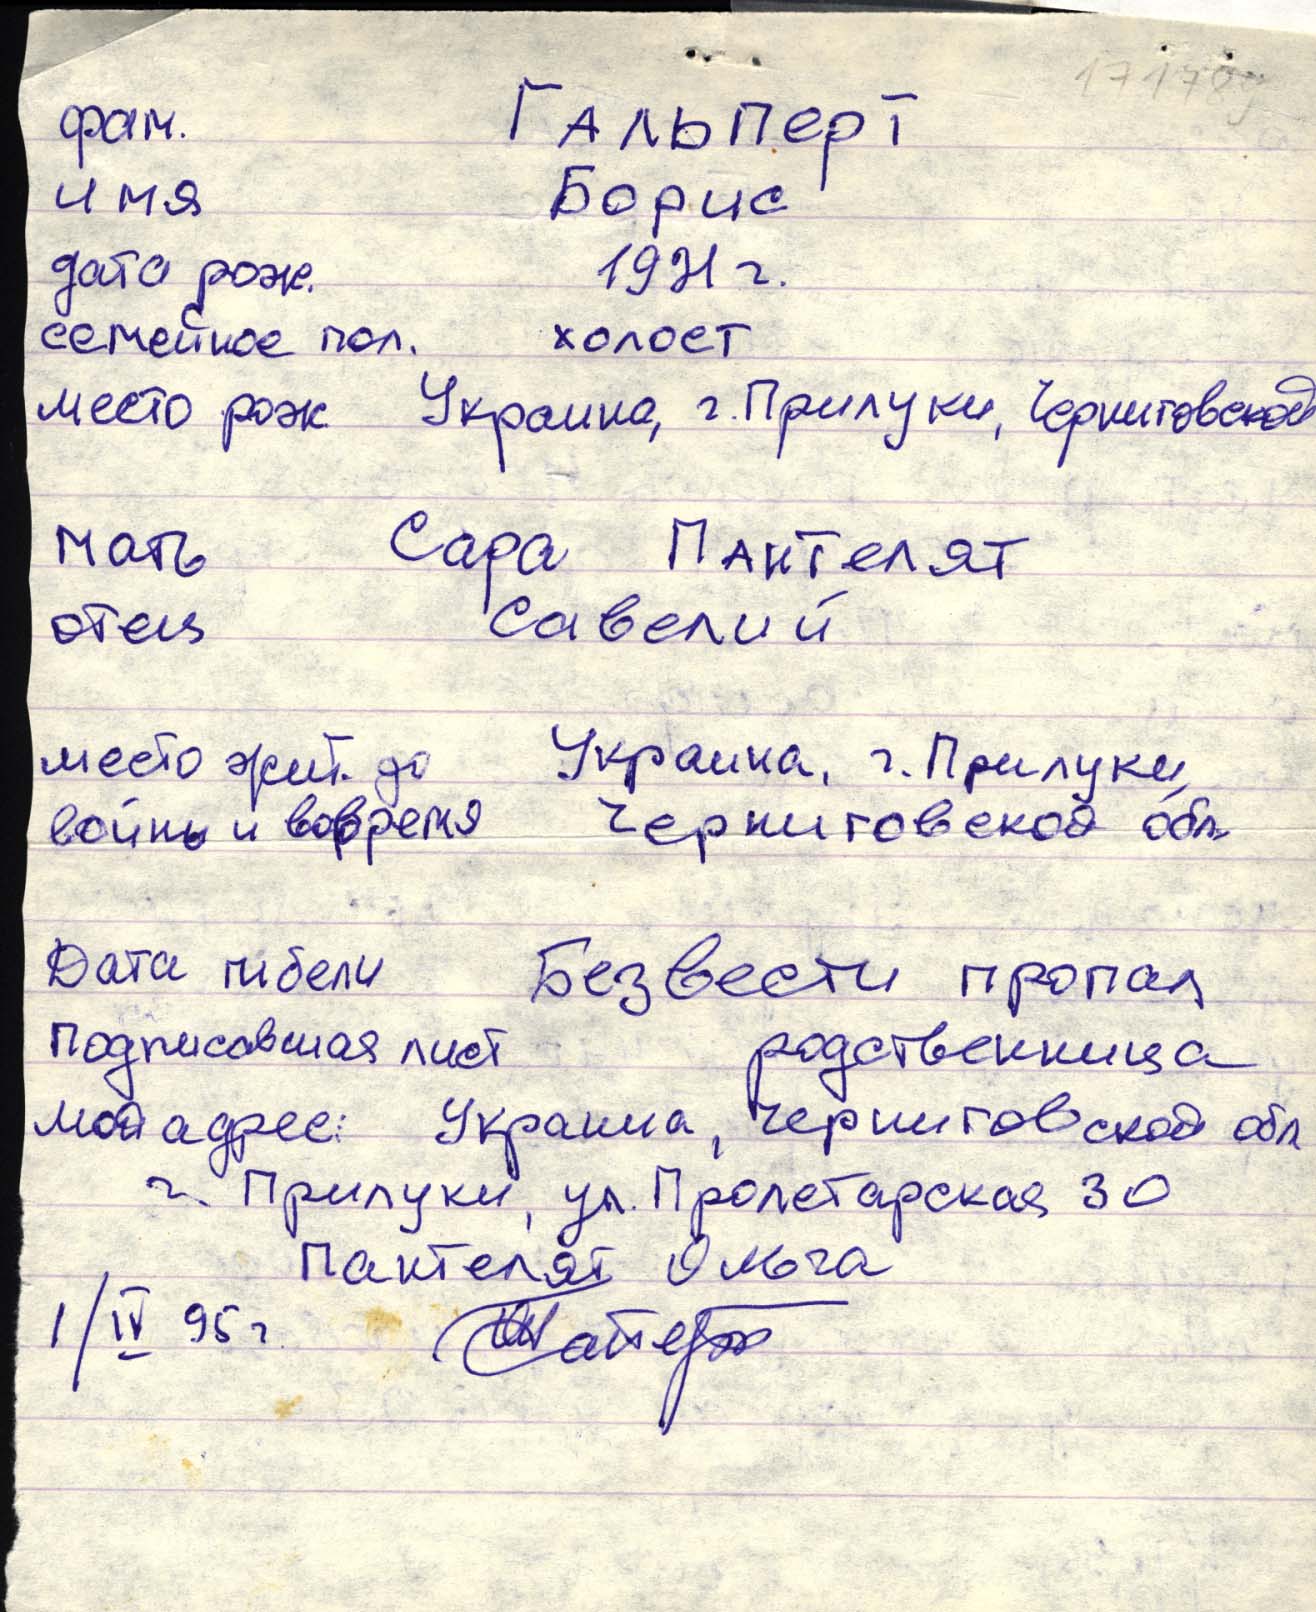 фам. Гальперт
имя Борис
дата рож. г.
семейное пол. холост
место рож Украина, г. Прилуки, Черниговской
мать Сара Пантелят
отец Савелий
место жит. до Украина, г. Прилуки,
войны и вовремя Черниговской обл.
Дата гибели Безвести пропал
Подписавшая лист родственница
мой адрес: Украина, Черниговской обл
г. Прилуки, ул. Пролетарская 30
Пантелят Ольга
1/IV 95 г.